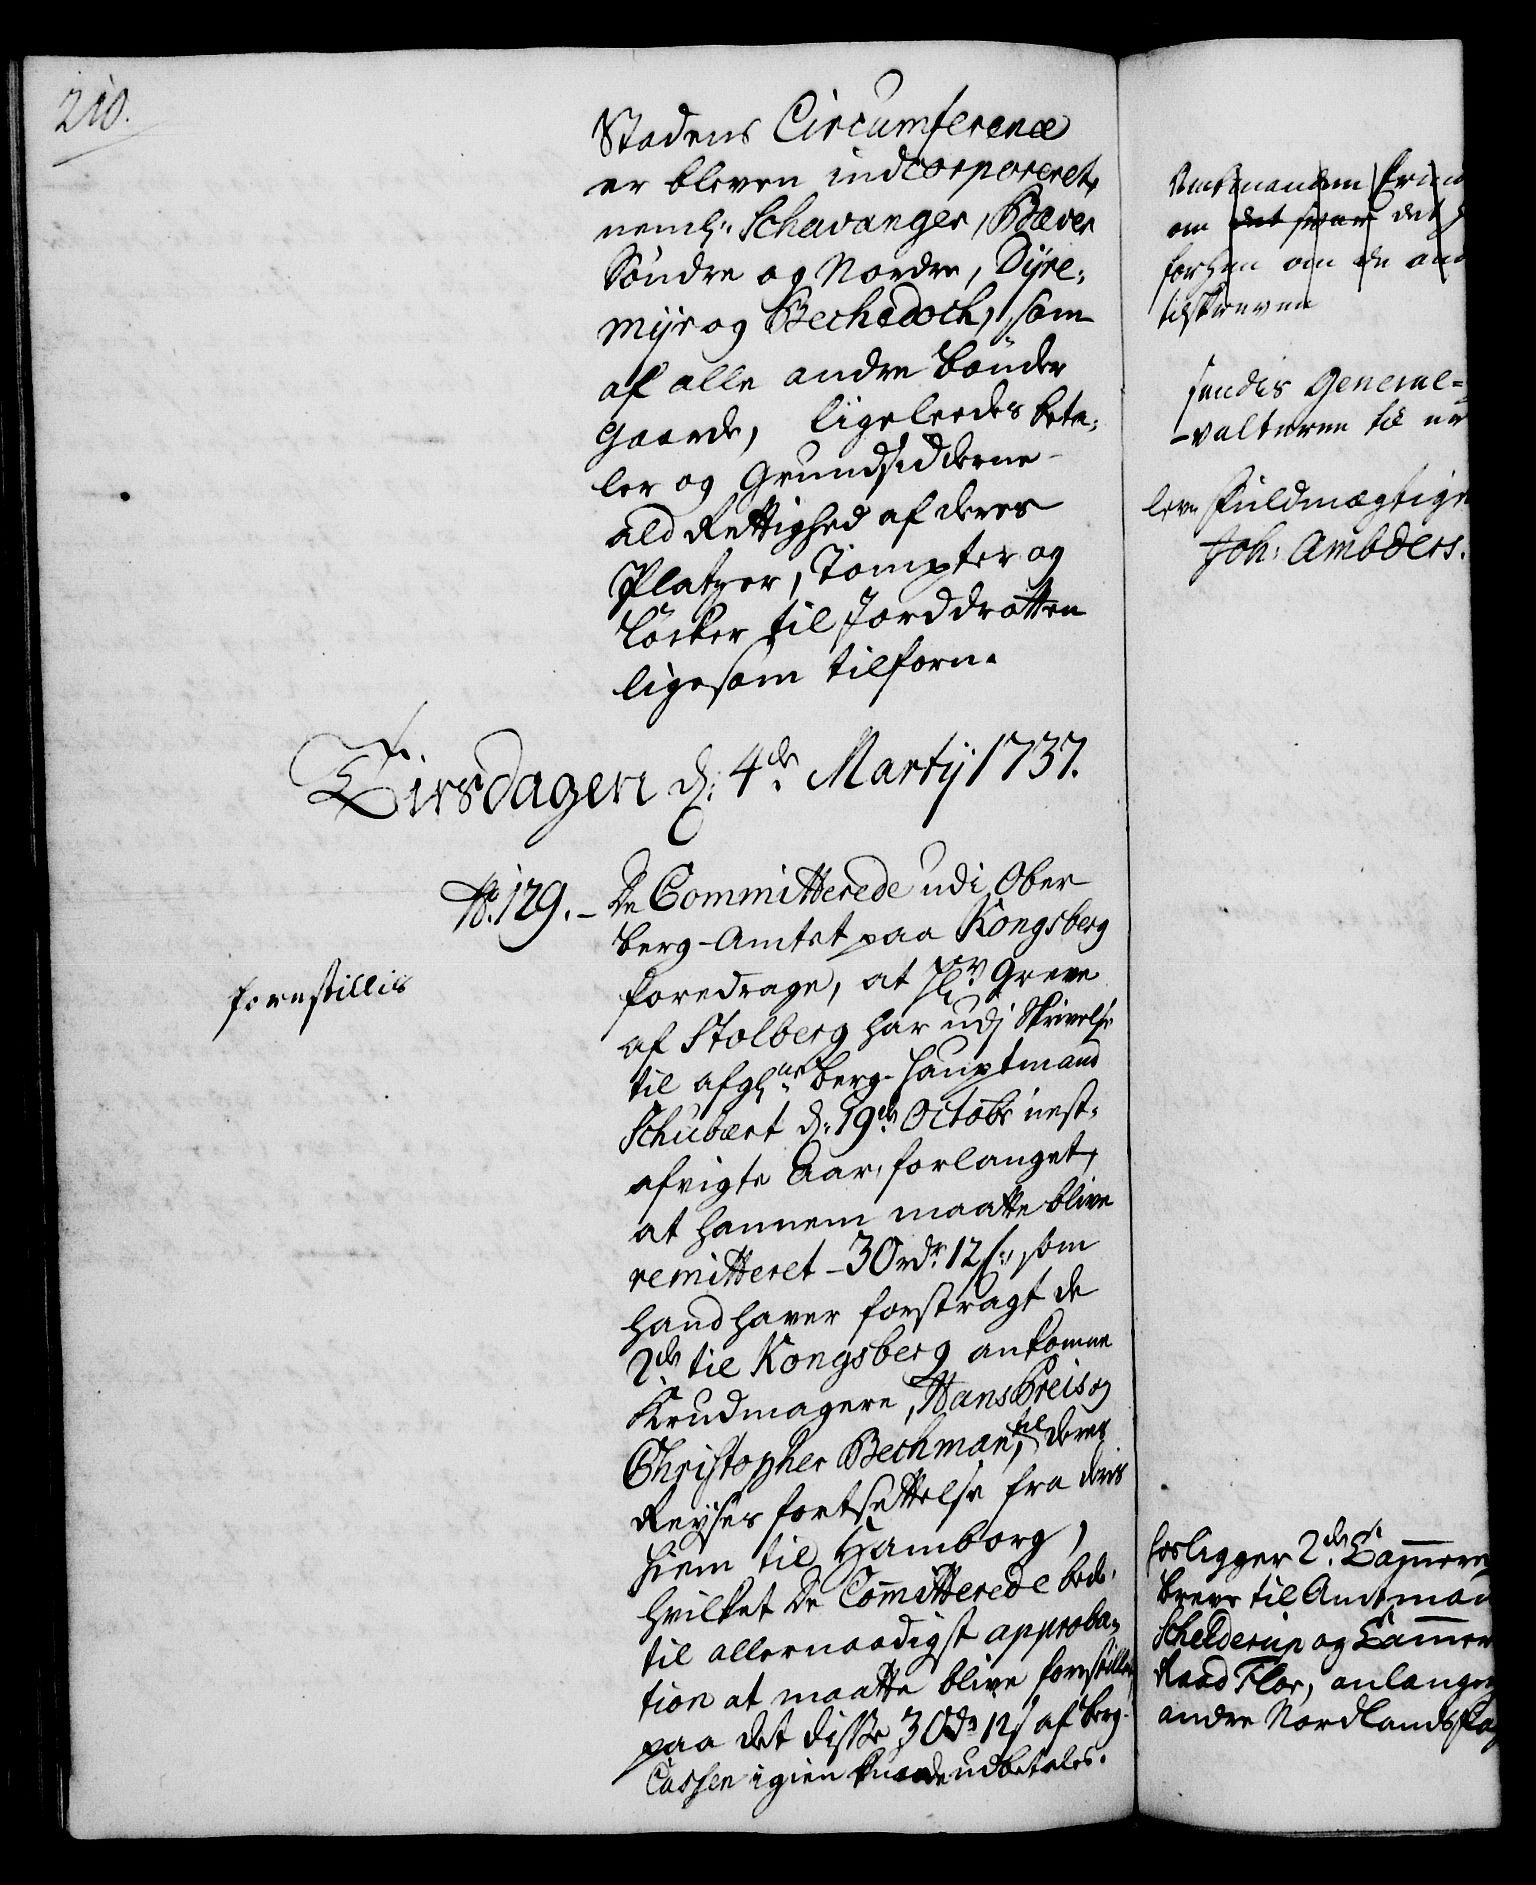 210.
Stadens Circumference
er bleven indcorporeret,
neml: Schavanger, Bæver
Söndre og Nordre, Dÿre-
mÿr og Bechedoch, som
af alle andre bönder
Gaarde, ligeleedes beta-
ler og Grundsidderne
ald Rettighed af deres
Platzer, Tompter og
Löcker til Jorddrotten
ligesom tilforn.
Tirsdagen d: 4de Martij 1737.
No. 129. – De Committerede udi Ober
berg-Amtet paa Kongsberg
forestillis
foredrage, at Hr Greve
af Stolberg har udj Skrivelse
til afgl:ne berg-Hauptmand
Schubært d: 19de Octobr nest-
afvigte Aar, forlanget,
at hannem maatte blive
remitteret – 30 rdr 12 s:, som
hand haver forstragt de
2de til Kongsberg ankomne
Krudmagere, Hans Preis og
Christopher Bechman, til deres
Reyses fortsettelse fra deris
hiem til Hamborg,
hvilket De Committerede bede,
til allernaadigst approba-
tion at maatte blive forestillet,
paa det disse 30 dr 12 s af berg-
Cassen igien kunde udbetales.
Amtmanden
om det svar det
forhen om de and
tilskreven
sendis General-
-valteren til
leve Fuldmægtige
Joh: Ambders.
forligger 2de Cammer
breve til Amtman
Schelderup og Cammer
Raad Flor, anlange
andre Nordlands